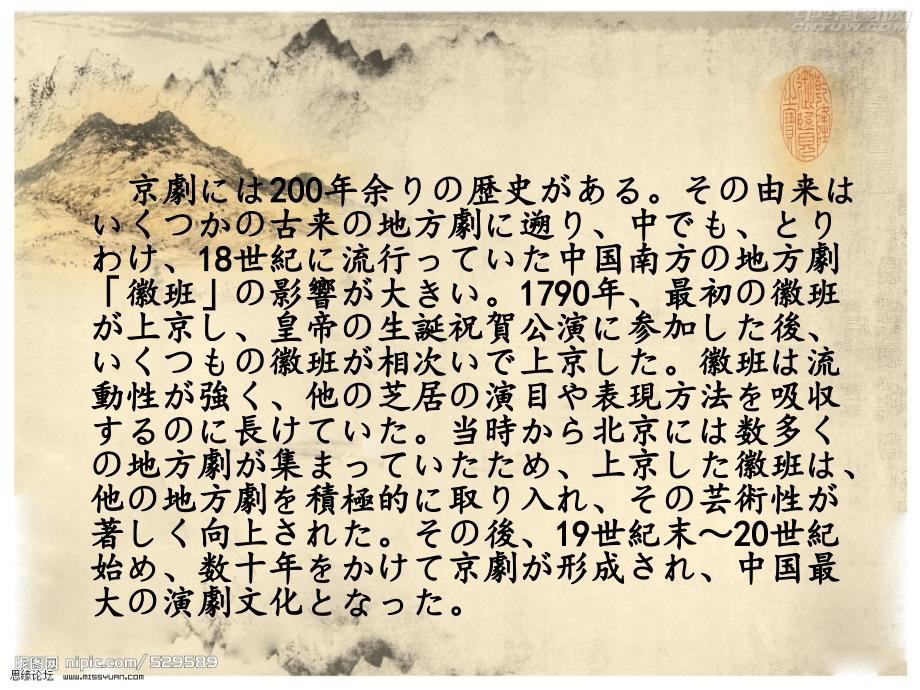 京劇には200年余りの歴史がある。その由来は
いくつかの古来の地方劇に遡り、中でも、とり
わけ、18世紀に流行っていた中国南方の地方劇
「徽班」の影響が大きい。1790年、最初の徽班
が上京し、皇帝の生誕祝賀公演に参加した後、
いくつもの徽班が相次いで上京した。徽班は流
動性が強く、他の芝居の演目や表現方法を吸収
するのに長けていた。当時から北京には数多く
の地方劇が集まっていたため、上京した徽班は、
他の地方劇を積極的に取り入れ、その芸術性が
著しく向上された。その後、19世紀末～20世紀
始め、数十年をかけて京劇が形成され、中国最
大の演劇文化となった。
昵图网 nipic.com/529589
思缘论坛 www.missyuan.com